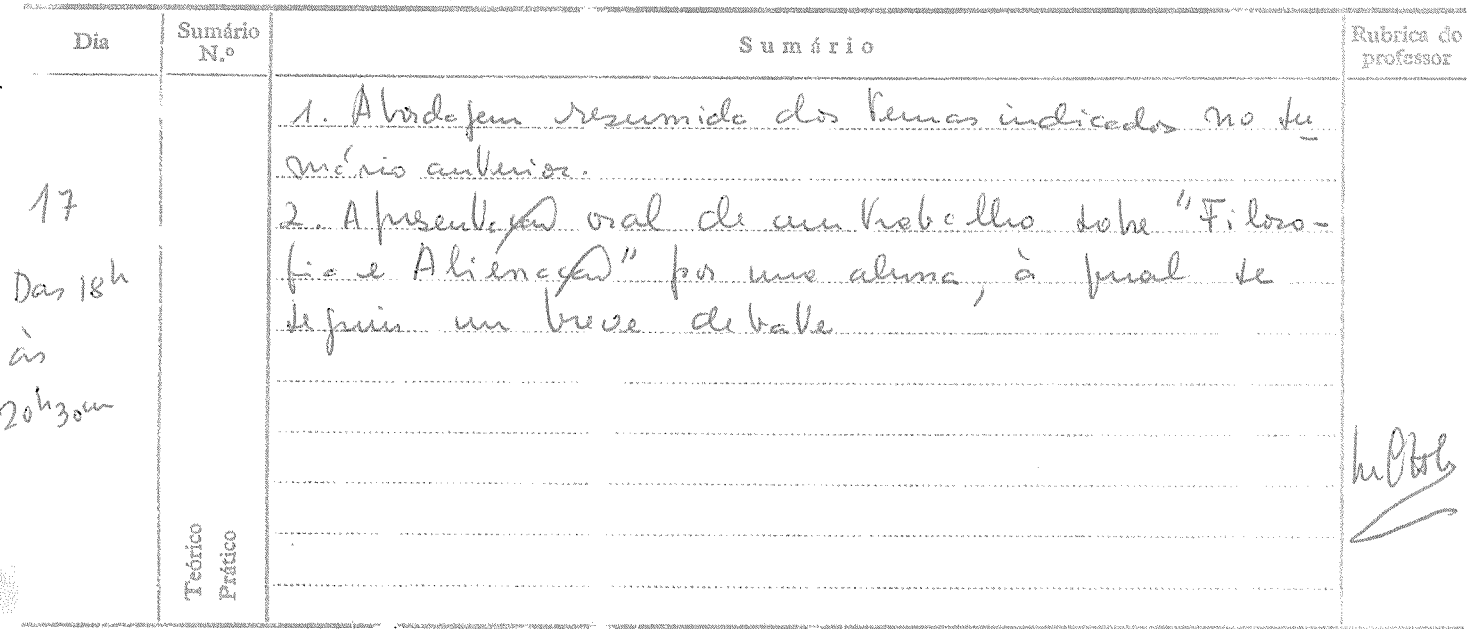 Dia
Sumário
N.º
Sumário
Rubrica do
professor
17
Das 18h
às
20h30m
1. Abordagem resumida dos temas indicados no su
mário anterior.
2. Apresentação oral de um trabalho sobre "Filoso-
fia e Alienação" por uma aluna, à qual se
seguiu um breve debate
Teórico
Prático